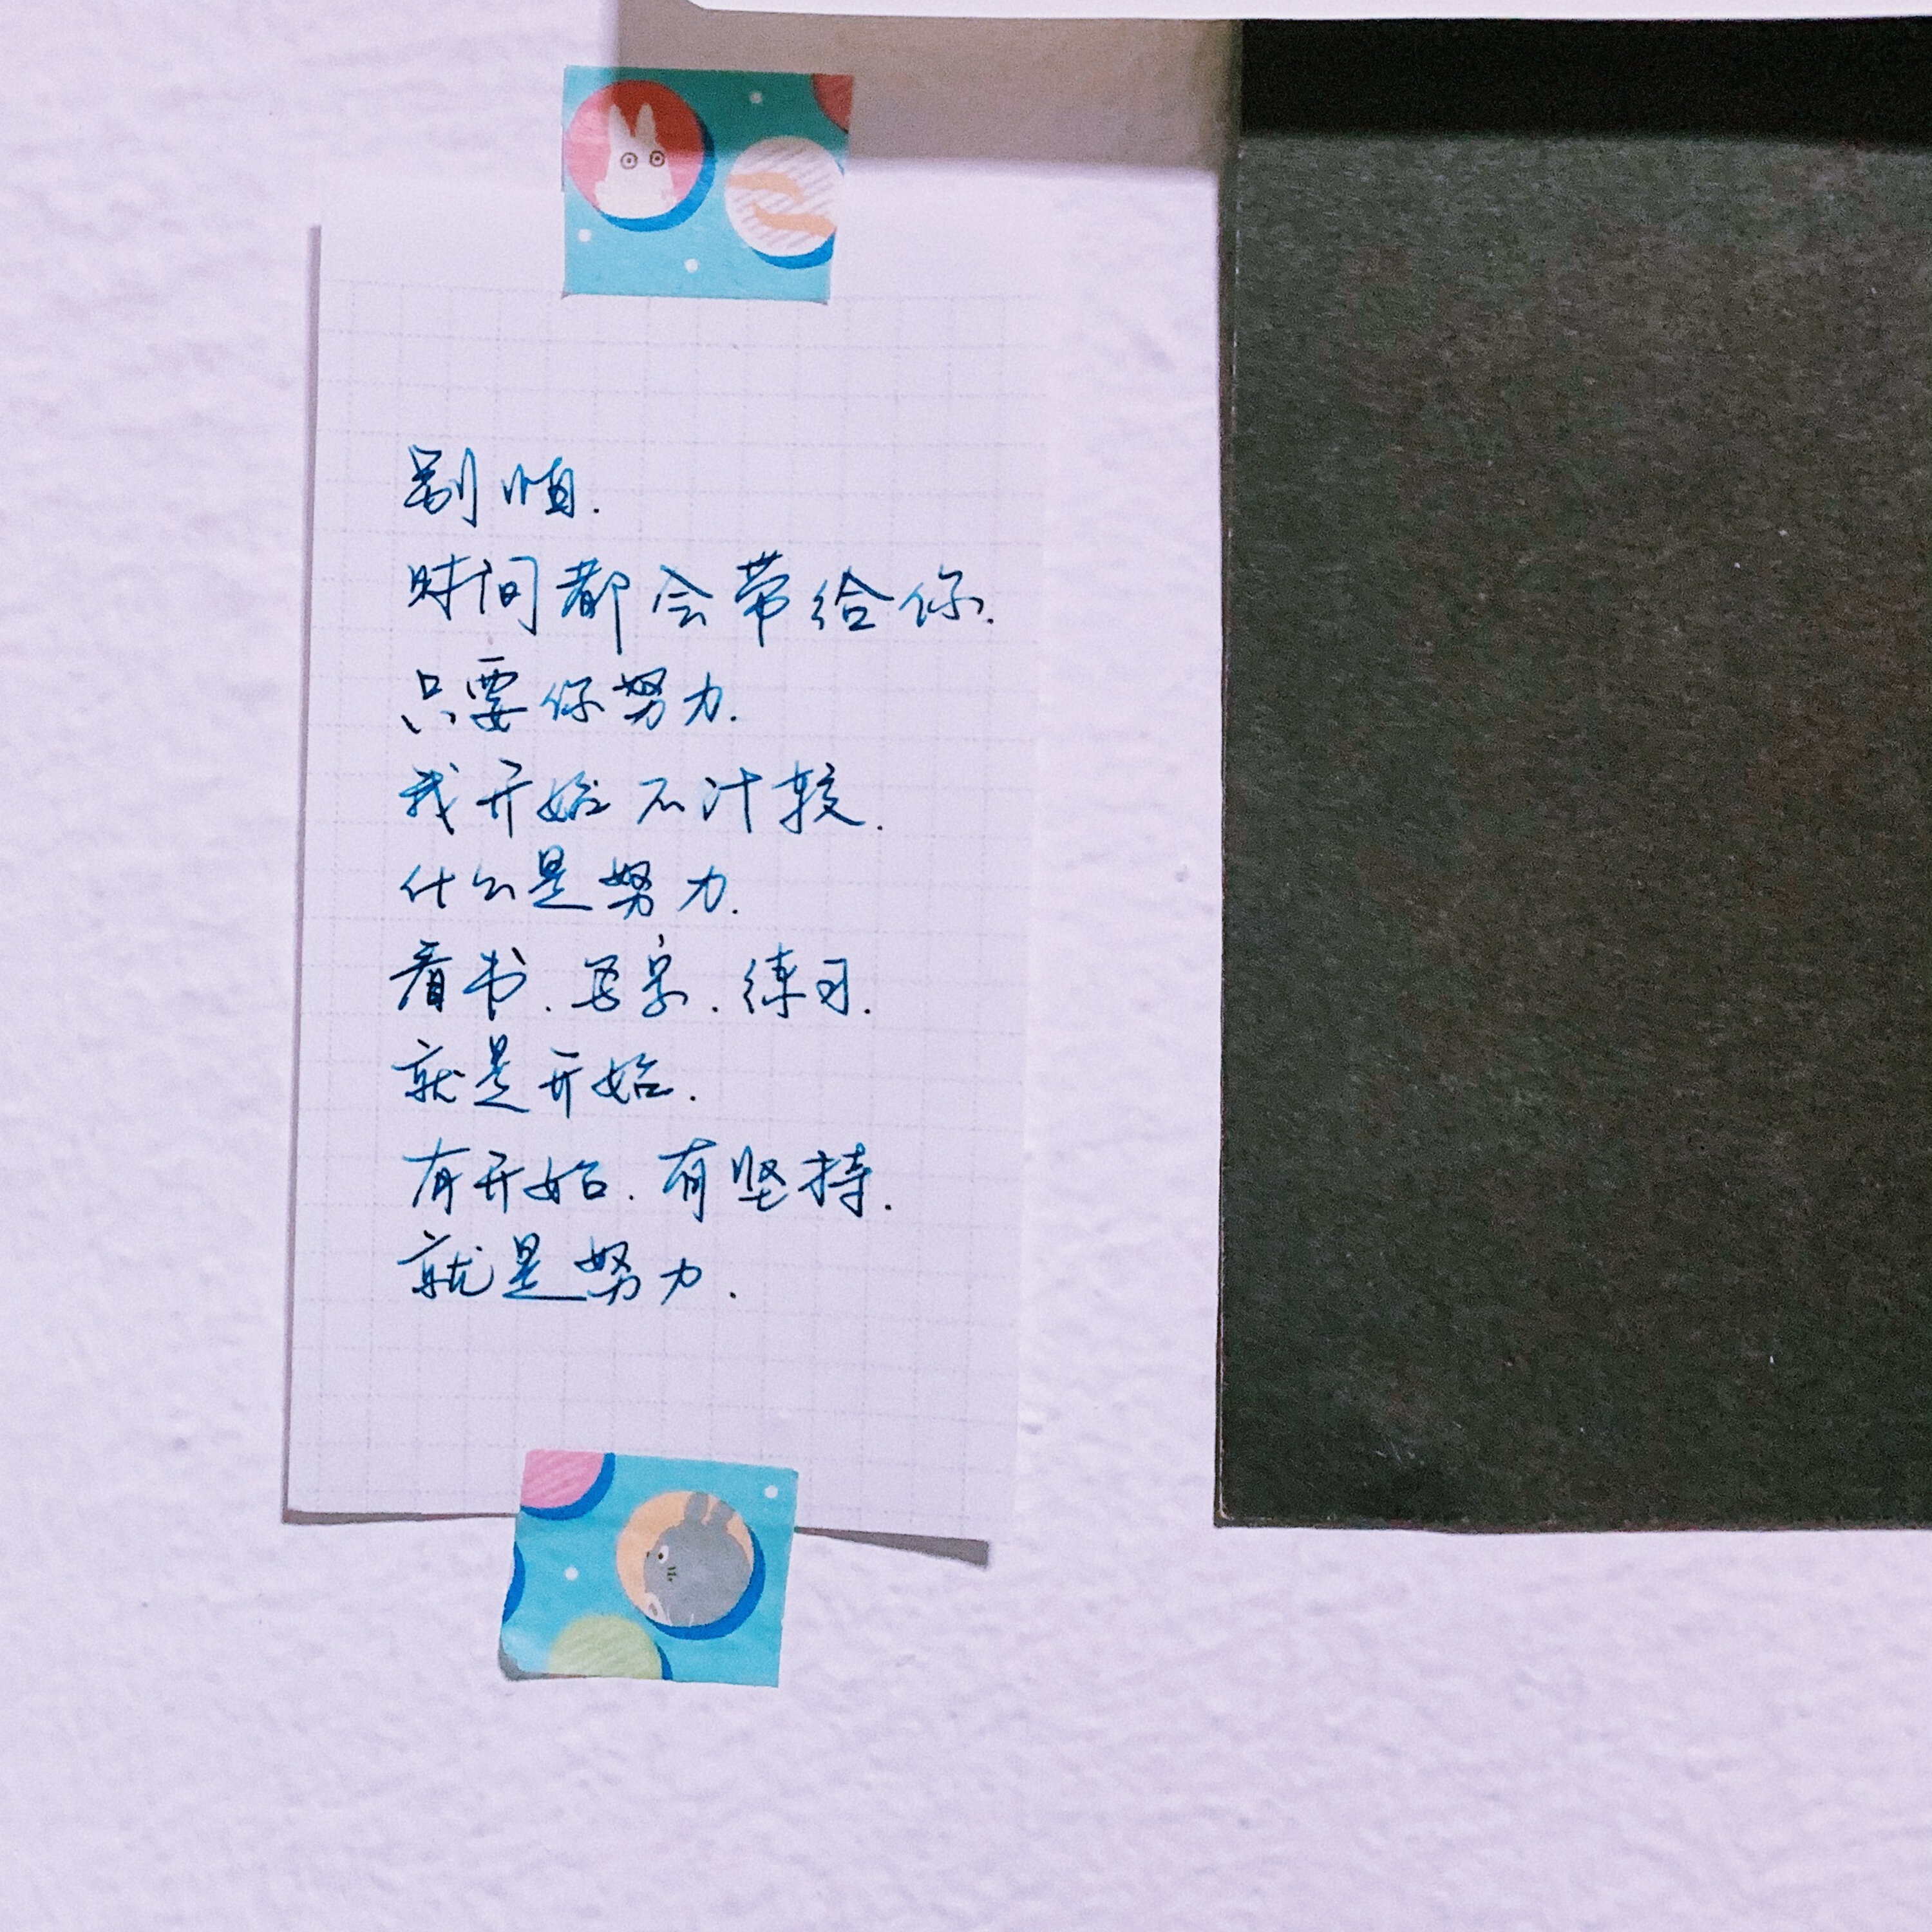 别慎.
时间都会带给你.
只要你努力.
我开始不计较.
什么是努力.
看书.写字.练习.
就是开始.
有开始.有坚持.
就是努力.